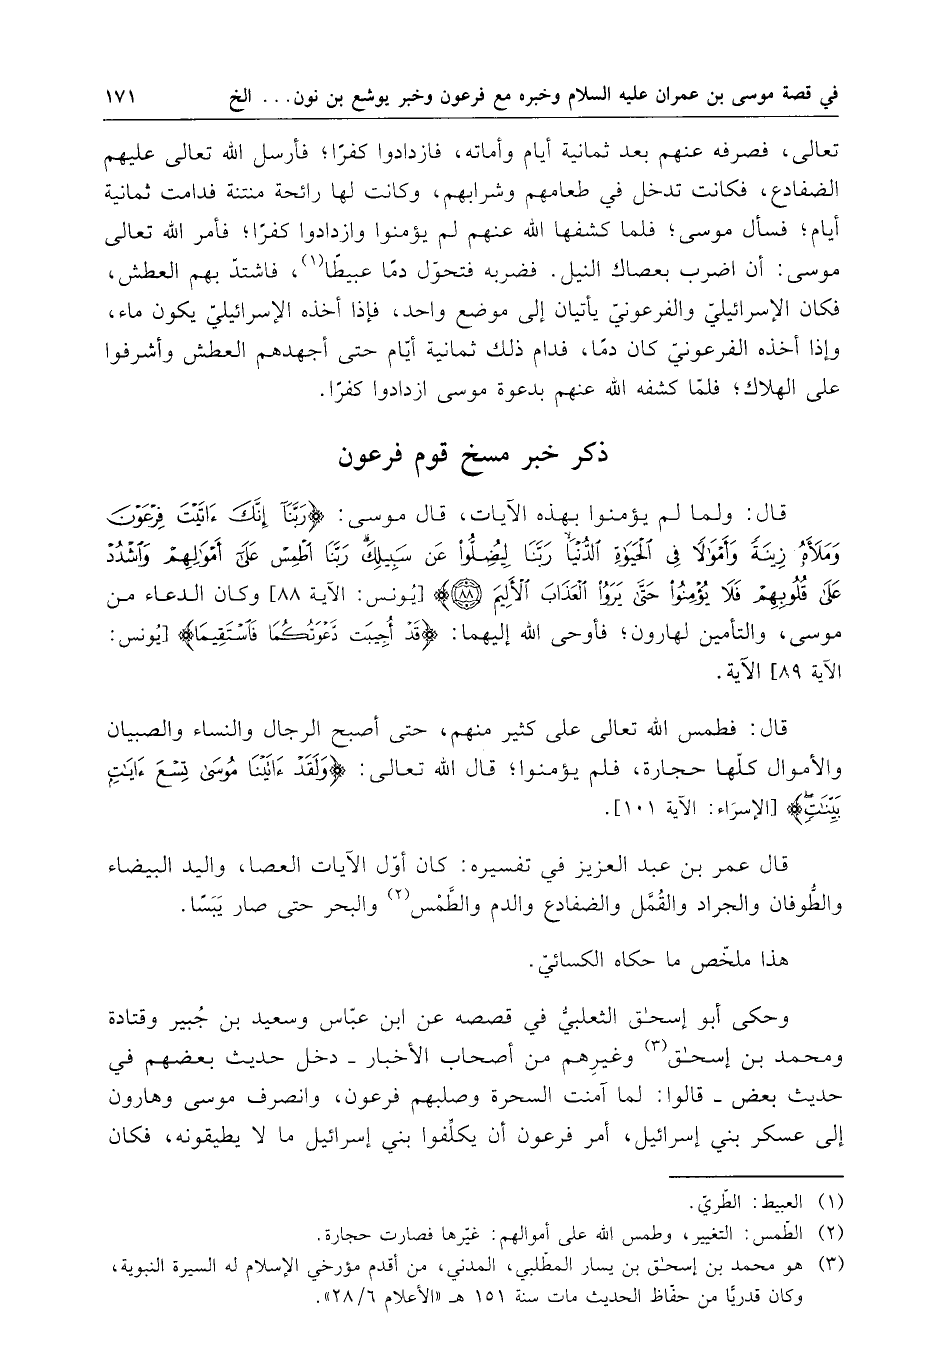 في قصة موسى بن عمران عليه السلام وخبره مع فرعون وخبر يوشع بن نون... الخ ١٧١
تعالى، فصرفه عنهم بعد ثمانية أيام وأماته، فازدادوا كفرًا؛ فأرسل الله تعالى عليهم
الضفادع، فكانت تدخل في طعامهم وشرابهم، وكانت لها رائحة منتنة فدامت ثمانية
أيام؛ فسأل موسى؛ فلما كشفها الله عنهم لم يؤمنوا وازدادوا كفرًا؛ فأمر الله تعالى
موسى: أن اضرب بعصاك النيل. فضربه فتحوّل دمًا عبيطًا(١)، فاشتدّ بهم العطش،
فكان الإسرائيليّ والفرعونيّ يأتيان إلى موضع واحد، فإذا أخذه الإسرائيليّ يكون ماء،
وإذا أخذه الفرعونيّ كان دمًا، فدام ذلك ثمانية أيّام حتى أجهدهم العطش وأشرفوا
على الهلاك؛ فلمّا كشفه الله عنهم بدعوة موسى ازدادوا كفرًا.
ذكر خبر مسخ قوم فرعون
قال: ولما لم يؤمنوا بهذه الآيات، قال موسى: ﴿رَبَّنَآ إِنَّكَ ءَاتَيْتَ فِرْعَوْنَ
وَمَلَأَهُۥ زِينَةً وَأَمْوَٰلًا فِى ٱلْحَيَوٰةِ ٱلدُّنْيَا رَبَّنَا لِيُضِلُّوا۟ عَن سَبِيلِكَۖ رَبَّنَا ٱطْمِسْ عَلَىٰٓ أَمْوَٰلِهِمْ وَٱشْدُدْ
عَلَىٰ قُلُوبِهِمْ فَلَا يُؤْمِنُوا۟ حَتَّىٰ يَرَوُا۟ ٱلْعَذَابَ ٱلْأَلِيمَ ﴿٨٨﴾﴾ [يُونس: الآية ٨٨] وكان الدعاء من
موسى، والتأمين لهارون؛ فأوحى الله إليهما: ﴿قَدْ أُجِيبَت دَّعْوَتُكُمَا فَٱسْتَقِيمَا﴾ [يُونس:
الآية ٨٩] الآية.
قال: فطمس الله تعالى على كثير منهم، حتى أصبح الرجال والنساء والصبيان
والأموال كلّها حجارة، فلم يؤمنوا؛ قال الله تعالى: ﴿وَلَقَدْ ءَاتَيْنَا مُوسَىٰ تِسْعَ ءَايَٰتٍۭ
بَيِّنَٰتٍۖ﴾ [الإسرَاء: الآية ١٠١].
قال عمر بن عبد العزيز في تفسيره: كان أوّل الآيات العصا، واليد البيضاء
والطُّوفان والجراد والقُمَّل والضفادع والدم والطَّمْس(٢) والبحر حتى صار يَبَسًا.
هذا ملخّص ما حكاه الكسائيّ.
وحكى أبو إسحٰق الثعلبيُّ في قصصه عن ابن عبّاس وسعيد بن جُبير وقتادة
ومحمد بن إسحٰق(٣) وغيرهم من أصحاب الأخبار ـ دخل حديث بعضهم في
حديث بعض ـ قالوا: لما آمنت السحرة وصلبهم فرعون، وانصرف موسى وهارون
إلى عسكر بني إسرائيل، أمر فرعون أن يكلِّفوا بني إسرائيل ما لا يطيقونه، فكان
(١) العبيط: الطّريّ.
(٢) الطّمس: التغيير، وطمس الله على أموالهم: غيّرها فصارت حجارة.
(٣) هو محمد بن إسحٰق بن يسار المطّلبي، المدني، من أقدم مؤرخي الإسلام له السيرة النبوية،
وكان قدريًّا من حفّاظ الحديث مات سنة ١٥١ هـ «الأعلام ٢٨/٦».